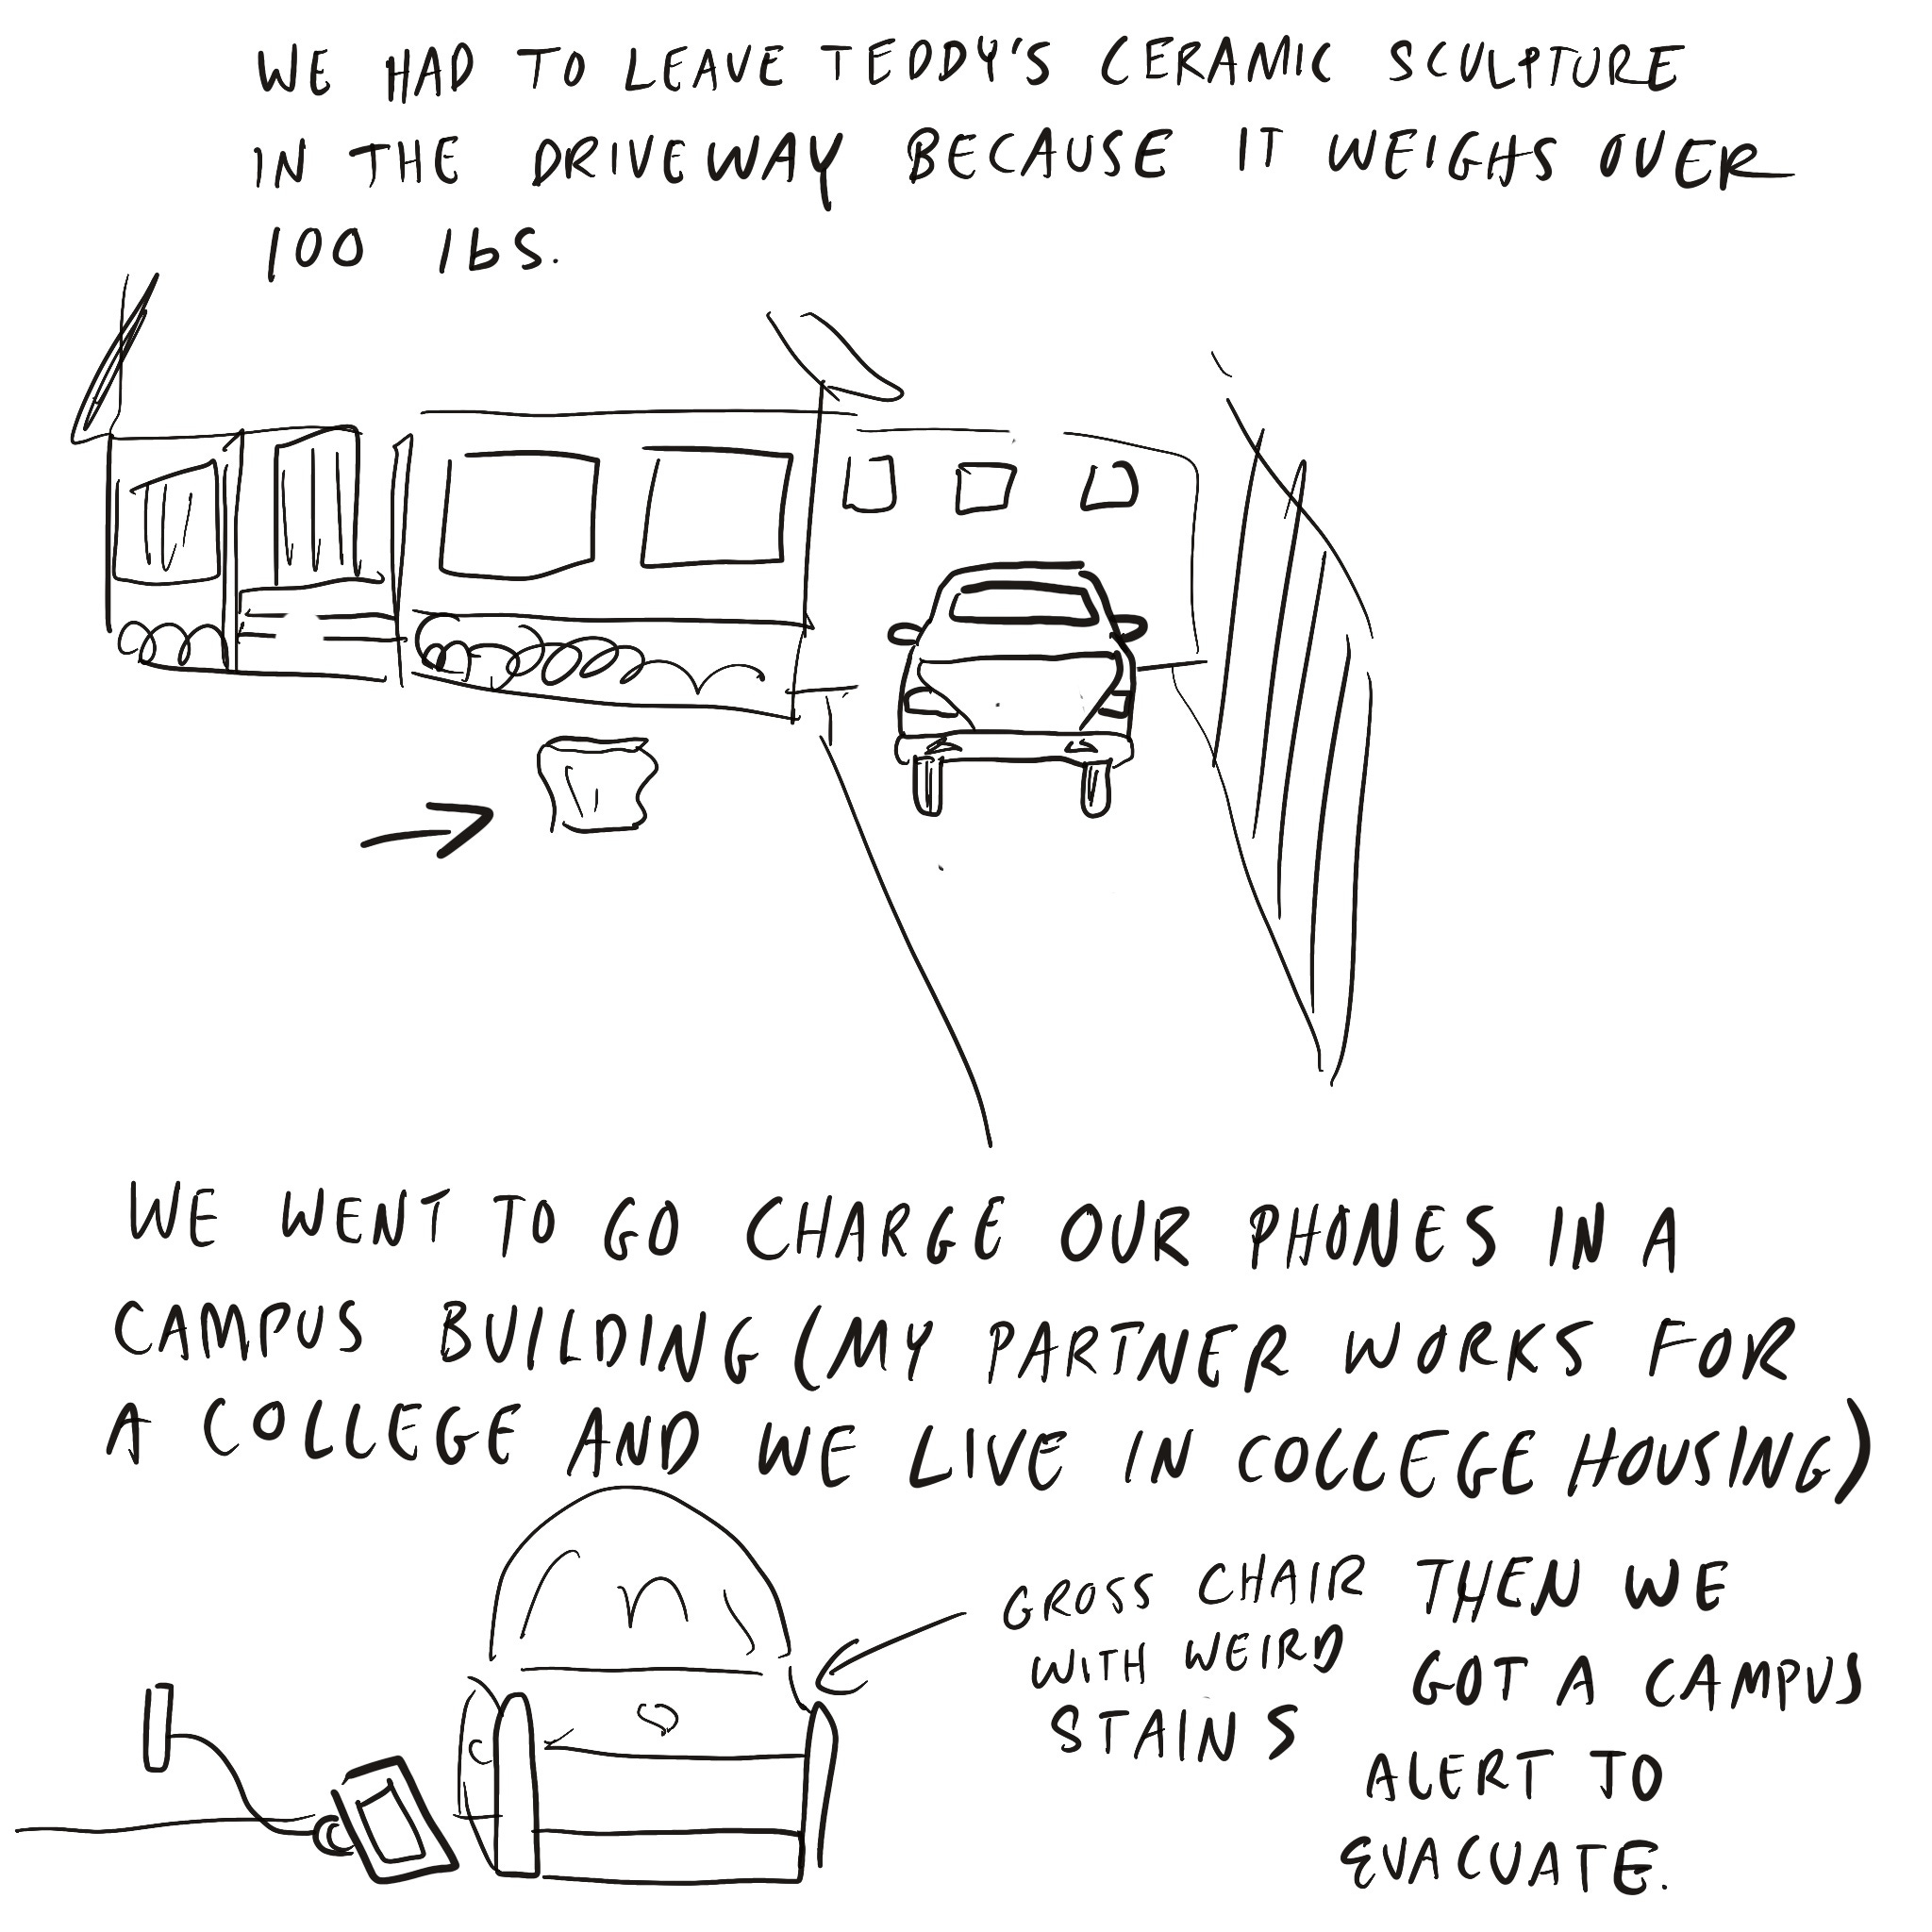 WE HAD TO LEAVE TEDDY'S CERAMIC SCULPTURE
IN THE DRIVEWAY BECAUSE IT WEIGHS OVER
100 lbs.
WE WENT TO GO CHARGE OUR PHONES IN A
CAMPUS BUILDING (MY PARTNER WORKS FOR
A COLLEGE AND WE LIVE IN COLLEGE HOUSING)
GROSS CHAIR
WITH WEIRD
STAINS
THEN WE
GOT A CAMPUS
ALERT TO
EVACUATE.